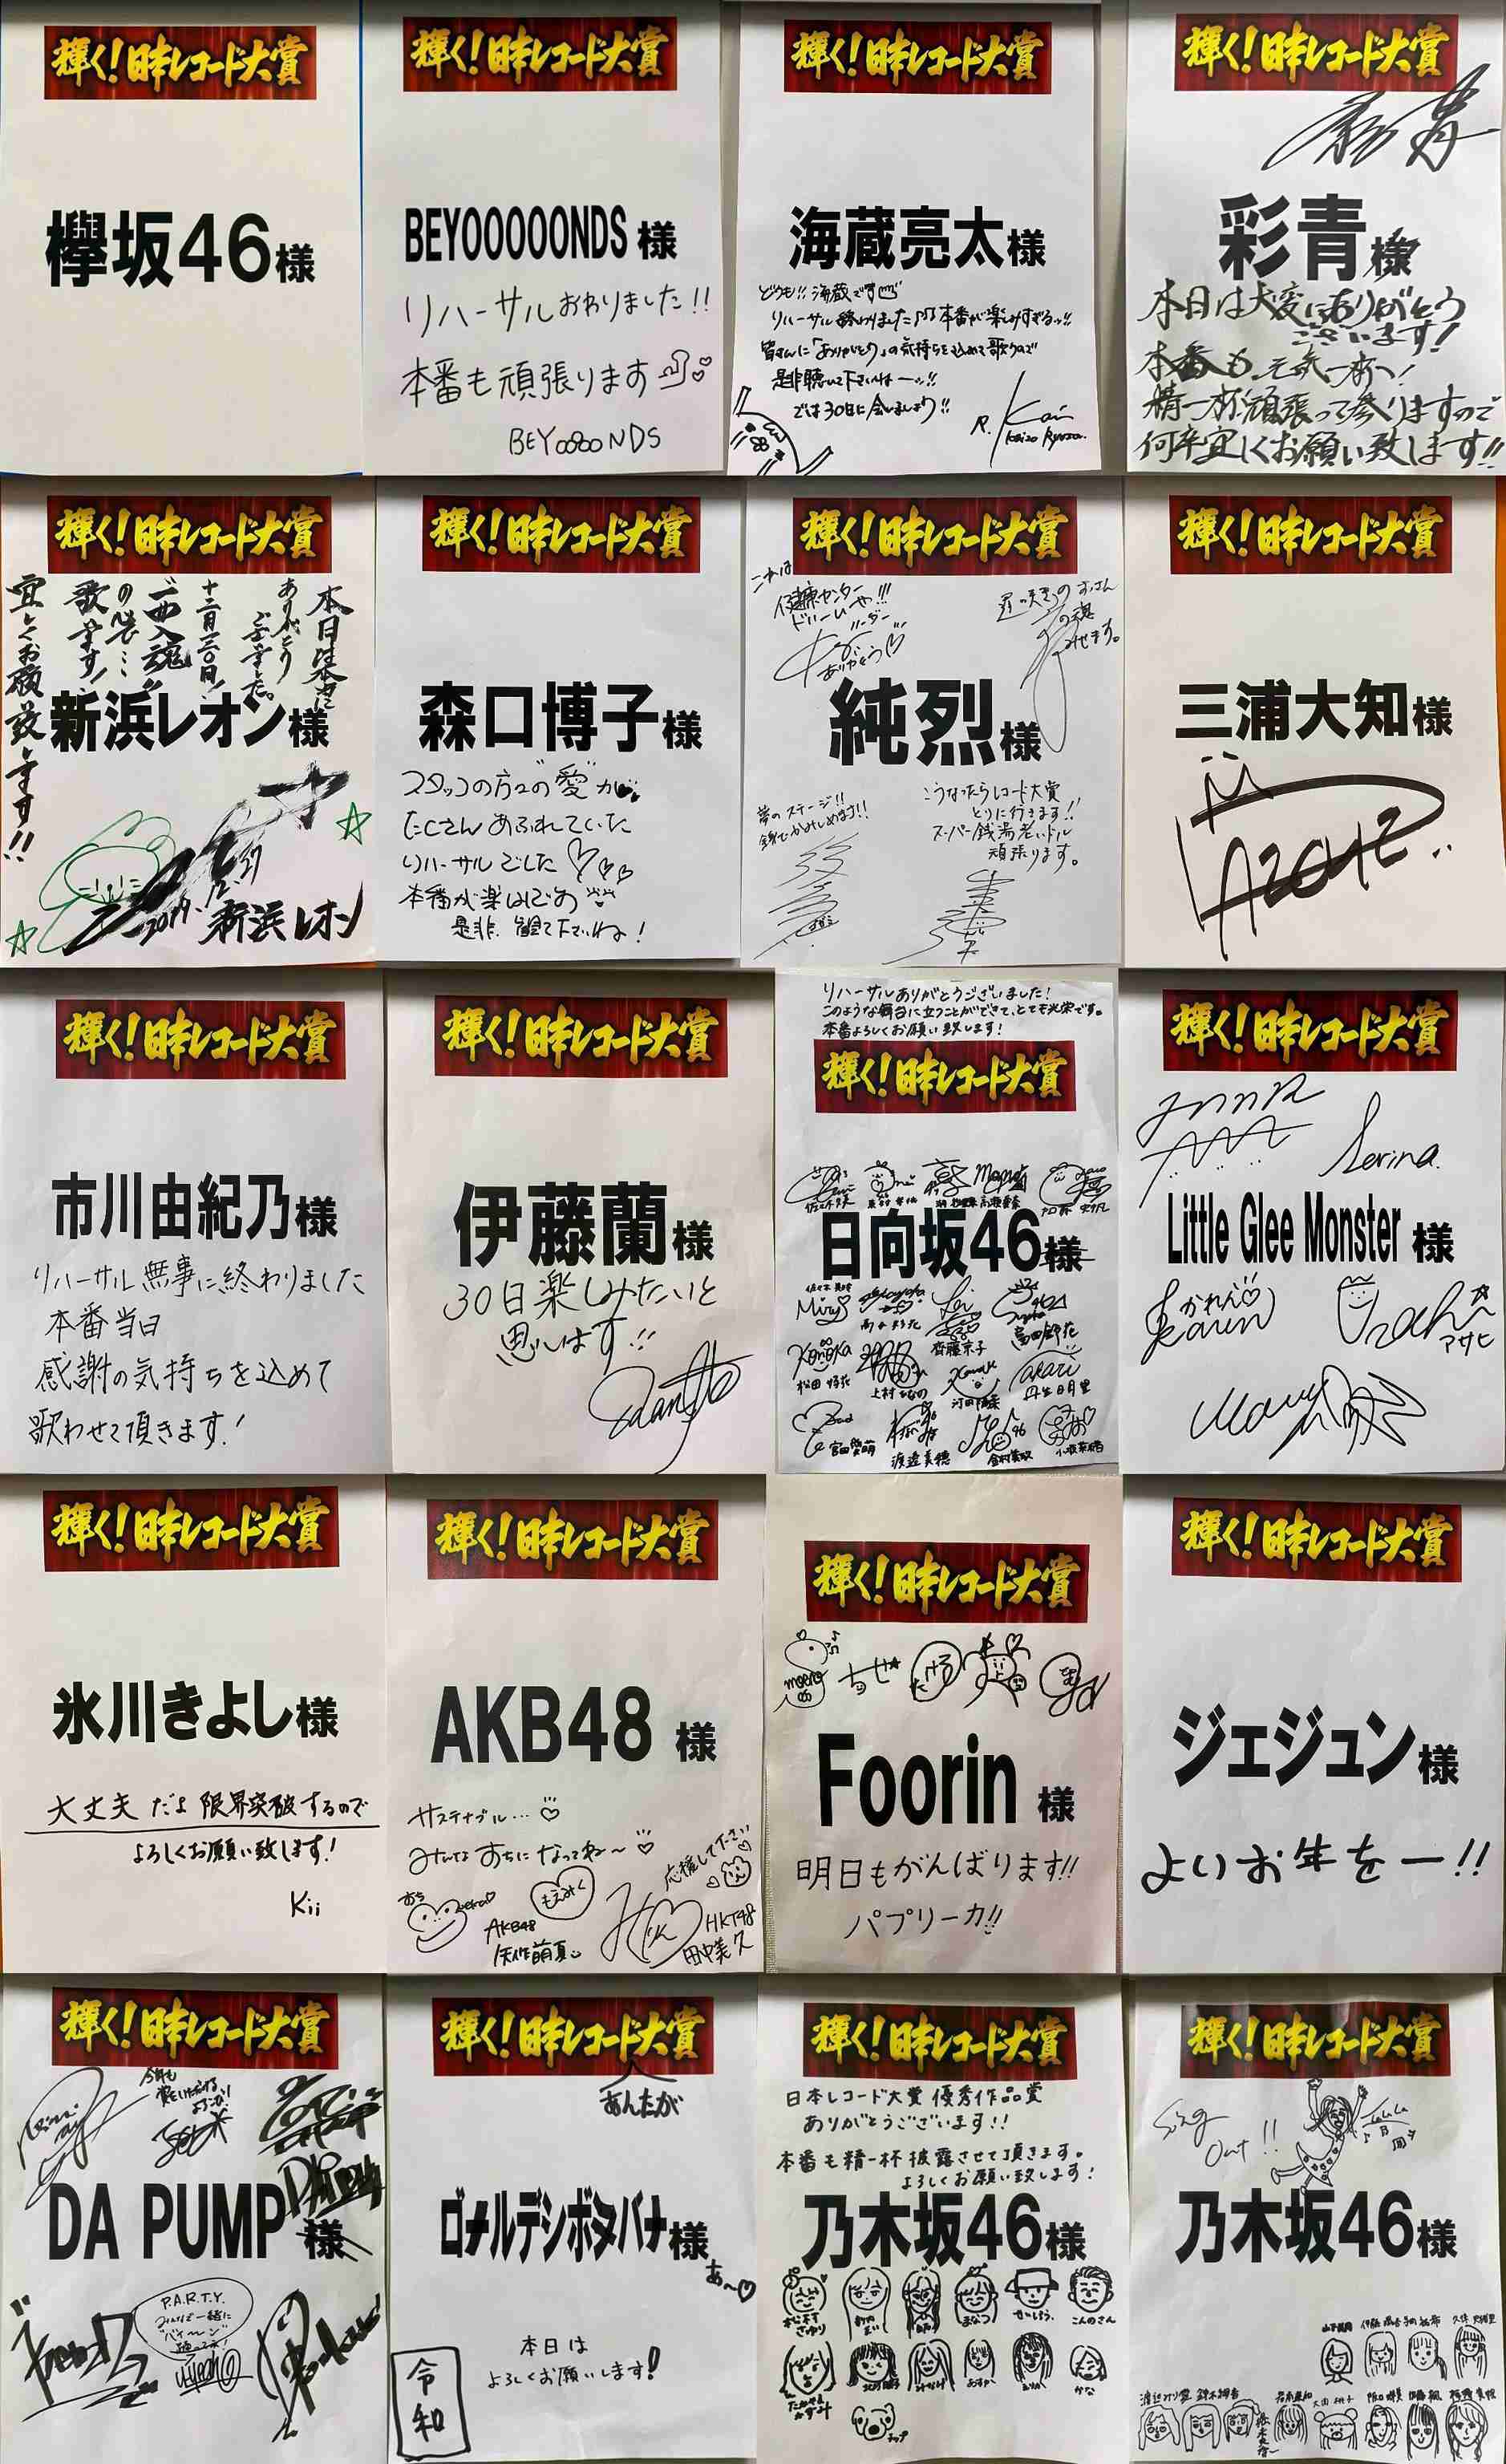 輝く!日本レコード大賞
欅坂46様
輝く!日本レコード大賞
BEYOOOOONDS 様
リハーサルおわりました!!
本番も頑張ります
BEYOOOOONDS
輝く!日本レコード大賞
海蔵亮太様
どうも!!海蔵です
リハーサル終わりました♪♪本番が楽しみすぎるッ!!
皆さんに「ありがとう」の気持ちを込めて歌うので
是非聴いて下さいねーッ!!
では30日に会いましょう!!
R. Kai
Kaizo Ryota.
輝く!日本レコード大賞
彩青
彩青様
本日は大変にありがとう
ございます!
本番も、元気一杯!
精一杯頑張って参りますので
何卒宜しくお願い致します!!
輝く!日本レコード大賞
本日は本当に
ありがとう
ございました。
十二月三〇日!
"一曲入魂"
の心で…
歌います!
宜しくお願い致します!!
新浜レオン様
2019.12.27
新浜レオン
輝く!日本レコード大賞
森口博子様
スタッフの方々の"愛"が
たくさんあふれていた
リハーサルでした♡♡♡
本番が楽しみです
是非、観て下さいね!
輝く!日本レコード大賞
これは
健康センター
ドリームや!!!
リーダー
ありがとう♡
遅咲きのおっさん
の魂
みせます。
純烈様
夢のステージ!!
全身でかみしめます!!
こうなったらレコード大賞
とりに行きます!!
スーパー銭湯老いドル
頑張ります。
輝く!日本レコード大賞
三浦大知様
輝く!日本レコード大賞
市川由紀乃様
リハーサル無事に終わりました
本番当日
感謝の気持ちを込めて
歌わせて頂きます!
輝く!日本レコード大賞
伊藤蘭様
30日楽しみたいと
思います!!
リハーサルありがとうございました!
このような舞台に立つことができて、とても光栄です。
本番よろしくお願い致します!
輝く!日本レコード大賞
日向坂46様
齊藤京子
富田鈴花
Konoka
松田好花
上村ひなの
河田陽菜
丹生明里
宮田愛萌
渡邉美穂
金村美玖
小坂菜緒
輝く!日本レコード大賞
Serina.
Little Glee Monster 様
かれん♡
Karen
アサヒ
輝く!日本レコード大賞
氷川きよし様
大丈夫だよ 限界突破するので
よろしくお願い致します!
Kii
輝く!日本レコード大賞
AKB48 様
サステナブル…♡
みんな おちに なってね〜♡
応援して下さい
おち
もえみく
AKB48
矢作萌夏
HKT48
田中美久
輝く!日本レコード大賞
moeno
ちせ★
たける
Foorin 様
明日もがんばります!!
パプリーカ!!
輝く!日本レコード大賞
ジェジュン様
よいお年をー!!
輝く!日本レコード大賞
今年も
DA PUMP 様
P.A.R.T.Y.
みんなで一緒に
輝く!日本レコード大賞
あんたが
ゴールデンボンバー様
あ〜♡
本日は
よろしくお願いします!
令和
輝く!日本レコード大賞
日本レコード大賞 優秀作品賞
ありがとうございます!!
本番も精一杯披露させて頂きます。
よろしくお願い致します!
乃木坂46様
まなつ
せいしろう
こんのさん
あすか
かな
チップ
輝く!日本レコード大賞
Sing
Out!!
乃木坂46様